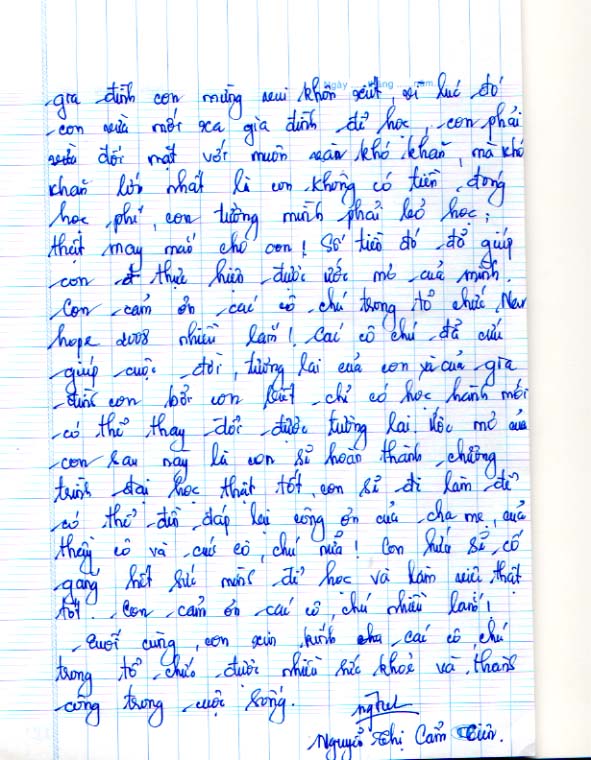 Ngày tháng năm
gia đình con mừng vui khôn xiết, vì lúc đó
con vừa mới xa gia đình để học, con phải
vừa đối mặt với muôn vàn khó khăn, mà khó
khăn lớn nhất là con không có tiền đóng
học phí, con tưởng mình phải bỏ học;
thật may mắn cho con! Số tiền đó đã giúp
con thực hiện được ước mơ của mình.
Con cảm ơn các cô chú trong tổ chức New
hope 2008 nhiều lắm! Các cô chú đã cứu
giúp cuộc đời, tương lai của con và của gia
đình con bởi con biết chỉ có học hành mới
có thể thay đổi được tương lai. Ước mơ của
con sau này là con sẽ hoàn thành chương
trình đại học thật tốt, con sẽ đi làm để
có thể đền đáp lại công ơn của cha mẹ, của
thầy cô và các cô, chú nữa! Con hứa sẽ cố
gắng hết sức mình để học và làm việc thật
tốt. Con cảm ơn các cô, chú nhiều lắm!
Cuối cùng, con xin kính chúc các cô chú
trong tổ chức được nhiều sức khoẻ và thành
công trong cuộc sống.
Nguyễn Thị Cẩm